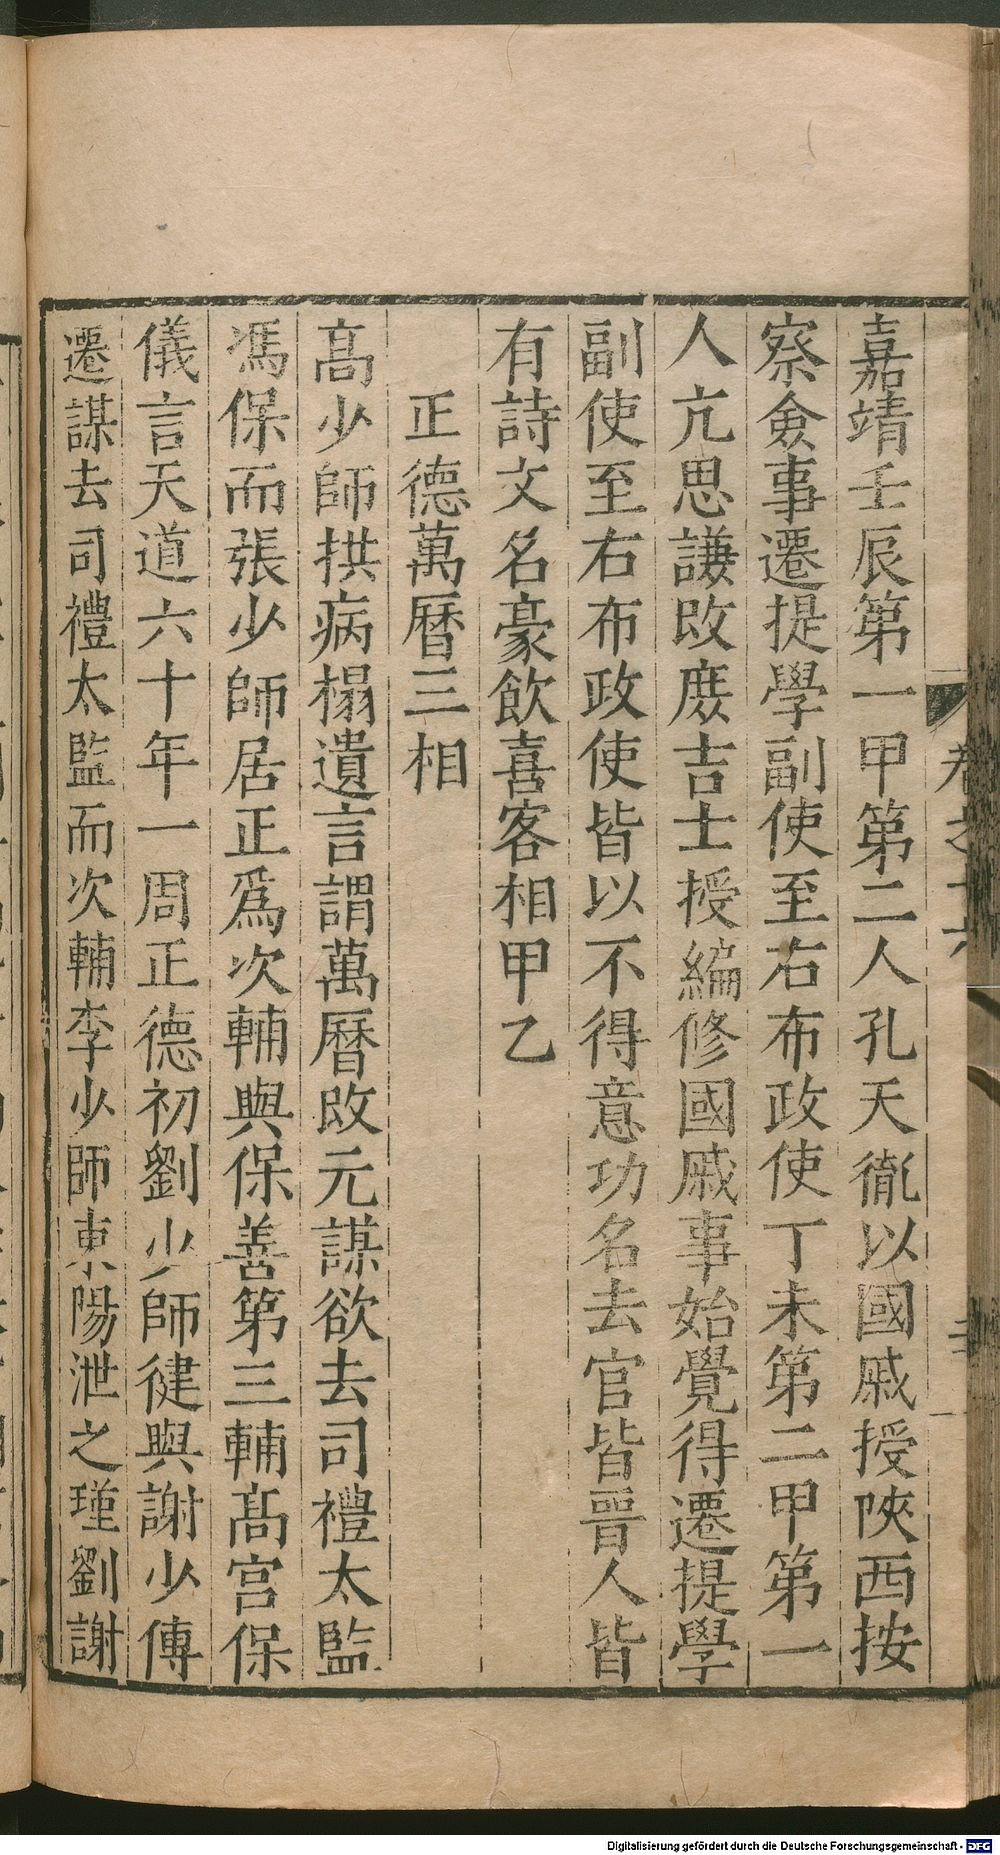 嘉靖壬辰第一甲第二人孔天胤以國戚授陝西按
察僉事遷提學副使至右布政使丁未第二甲第一
人亢思謙改庶吉士授編修國戚事始覺得遷提學
副使至右布政使皆以不得意功名去官皆晉人皆
有詩文名豪飲喜客相甲乙
正德萬曆三相
高少師拱病榻遺言謂萬曆改元謀欲去司禮太監
馮保而張少師居正爲次輔與保善第三輔高宮保
儀言天道六十年一周正德初劉少師健與謝少傅
遷謀去司禮太監而次輔李少師東陽泄之瑾劉謝
卷之十六
Digitalisierung gefördert durch die Deutsche Forschungsgemeinschaft - DFG